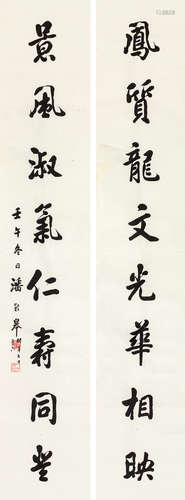 鳳質龍文光華相映
景風淑氣仁壽同登
壬午冬日潘齡皋